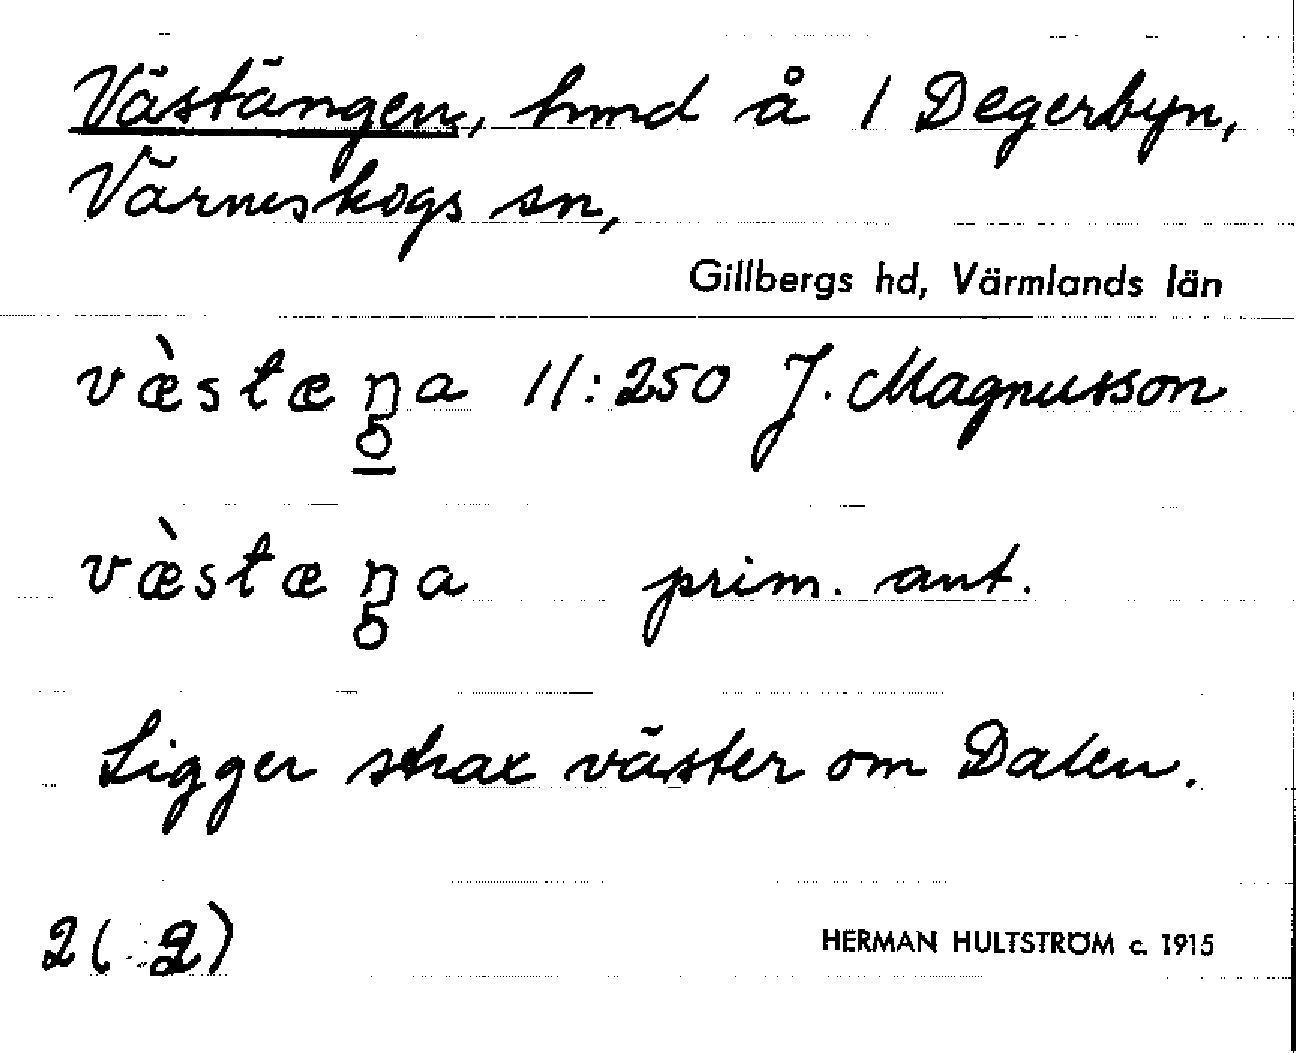 Västängen, hmd å 1 Degerbyn,
Värneskogs sn,
Gillbergs hd, Värmlands län
væ̀stæŋa 11:250 J. Magnusson
væ̀stæŋa prim. ant.
Ligger strax väster om Dalen.
2( 2)
HERMAN HULTSTRÖM c. 1915